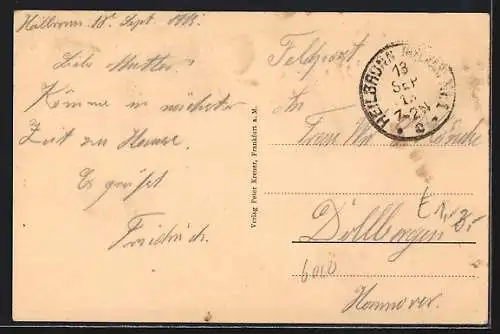 Heilbronn 18t Sept. 1915.
Liebe Mutter!
Komme in nächster
Zeit zu Hause.
Es grüßt
Friedrich.
Verlag Peter Kremer, Frankfurt a. M.
Feldpost.
HEILBRONN
13
SEP
1-2N
An
Frau
Dollbergen
Hannover.